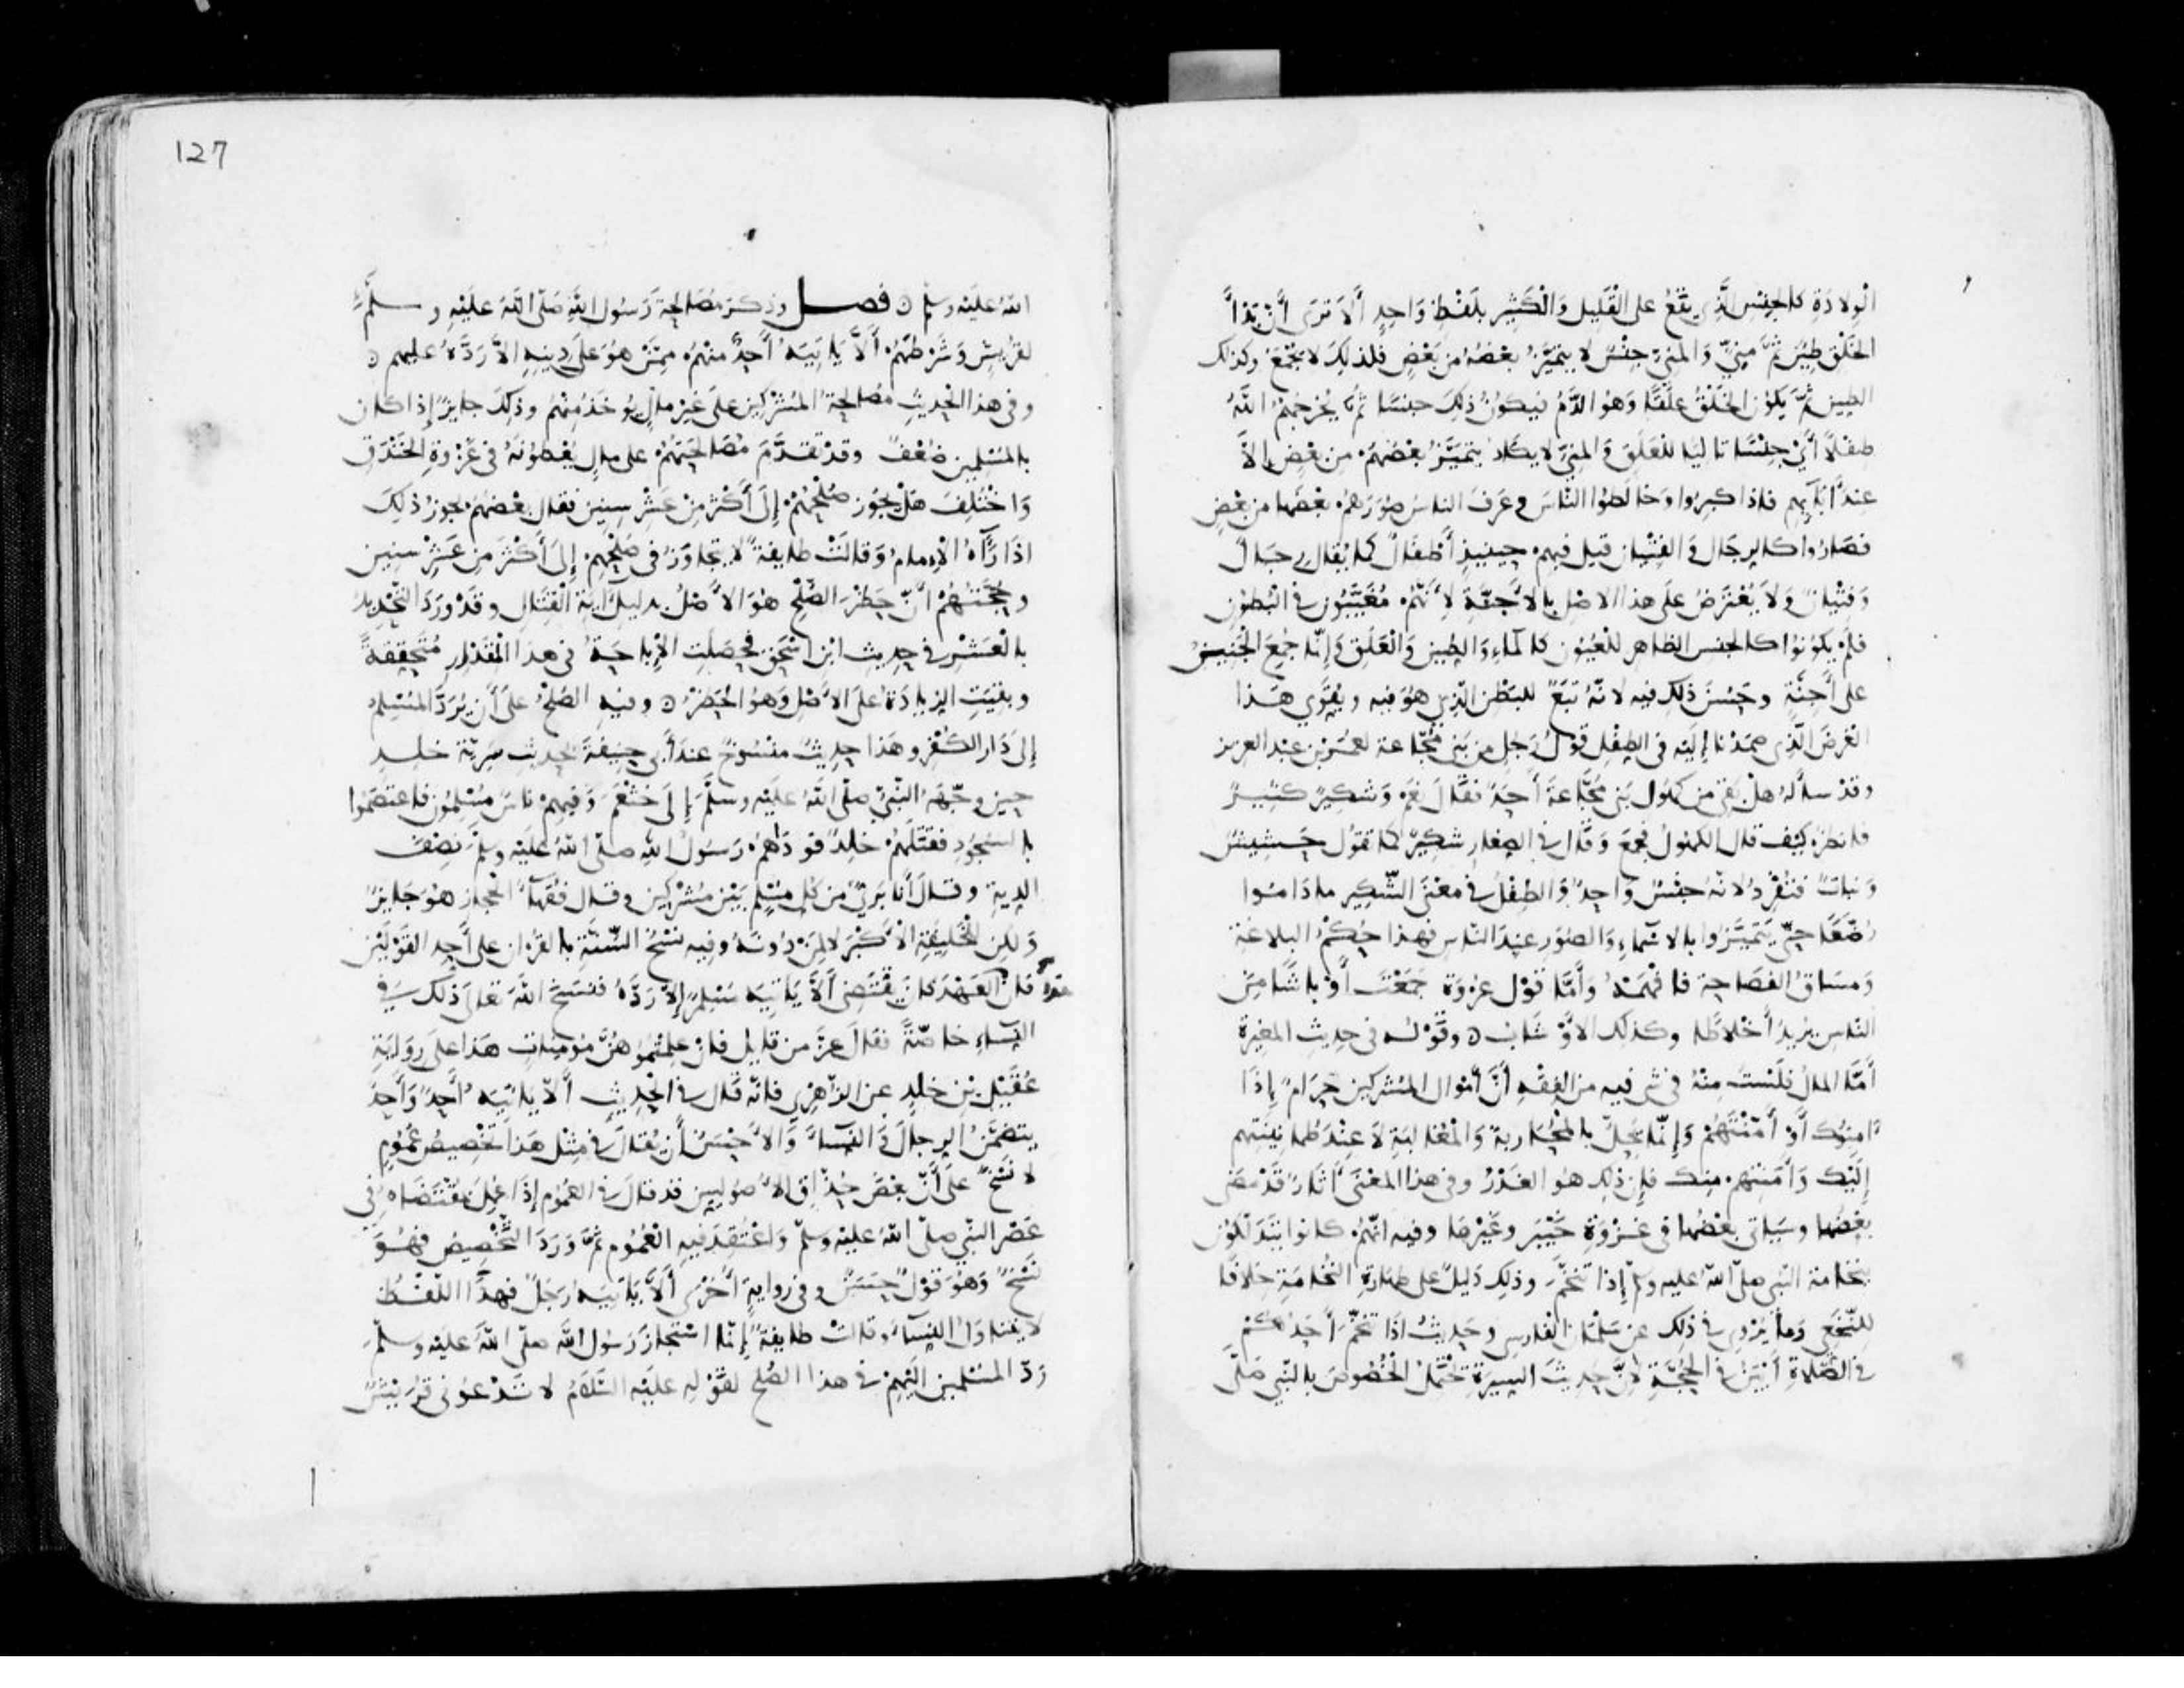 الْوِلادَةِ كالجِنْسِ الَّذِي يَقَعُ على الْقَلِيل وَالْكَثِيرِ بلَفْظٍ وَاحِدٍ أَلاَ تَرَى أَنَّ بَدْأَ
الخَلْق طِينٌ ثُمَّ مَنِيٌّ وَالمَنِيّ جِنْسٌ لا يتميَّزُ بعْضُهُ من بَعْضٍ فلذلِكَ لا يُجْمَعُ وكذلك
الطين ثمّ يكوْن الخَلْقُ عَلَقًا وَهُوَ الدَّمُ فيكوْنُ ذلِكَ جنسًا ثُمَّ يُخْرِجُهُمُ اللَّهُ
طفْلاً أَيْ جِنْسًا تاليًا للْعَلَقِ وَالمَنِيّ لا يكادُ يتمَيَّزُ بعْضُهُمْ مِن بعْضٍ إلاَّ
عندَ آبَآيِهِم فإذا كبِرُوا وَخالَطوُا النَّاسَ وعَرَفَ الناسُ صُوَرَهُمْ بعْضَها من بعْضٍ
فصَارُوا كالرِجَالِ وَالفِتْيانِ قيل فيهم حِينَيذٍ أَطْفَالٌ كما يُقال رِجَالٌ
وَفِتْيانٌ وَلاَ يُعْتَرَضُ عَلَى هذا الاصْل بالأجنَّةِ لأَنَّهُمْ مُغَيَّبُون في البُطوُن
فلَمْ يكوُنوُا كالجنس الظاهِر للْعُيُون كالمآءِ وَالطِين وَالعَلَق وَإنّما جُمِعَ الْجَنِينُ
على أَجِنَّةٍ وحَسُنَ ذلك فيه لانّهُ تَبَعٌ للبَطْن الّذِي هُوَ فيه ويُقوّي هَذا
الغَرضَ الّذِي صمَدْنا إلَيْهِ في الطِفْل قوْلُ رَجُلٍ من بَنِي مُجّاعة لعمَرَ بْنِ عبْد العزيز
وقدْ سألهُ هلْ بَقيَ من كهُول بَني مُجَّاعَةَ أَحَدٌ فقَال نعَمْ وَشكِيرٌ كثِيرٌ
فانظرْ كيْف قال الكهُول فجمَعَ وَقال في الصِغَارِ شكِيرٌ كما تقوُل حَشِيشٌ
وَنباتٌ فتُفْرِدُ لانّهُ جنْسٌ وَاحِدٌ وَالطِفْلُ في معْنَى الشّكِير ماداموُا
رُضَّعًا حتّى يتمَيَّزُوا بالاسْماءِ وَالصُّوَر عِنْدَ النّاس فهذا حُكْمُ البلاغَةِ
وَمسَاقُ الفصَاحةِ فافْهَمْهُ وَأَمَّا قوْل عُرْوَةَ جَمَعْتَ أَوْباشًا مِنَ
النّاس يُريدُ أَخْلاطًا وكذلك الاَوْشَابُ ۝ وقَوْلُه في حدِيث المغيرَة
أَمّا المالُ فلَسْتُ مِنْهُ في شيءٍ فيه من الفِقْهِ أَنَّ أَمْوال المُشْركين حَرامٌ إذَا
اَمِنوُكَ أَوْ أَمِنْتَهُمْ وَإنّما يَحِلُّ بالمُحارَبةِ وَالمُغالبَةِ لاَ عِنْدَ طُمَانِينَتِهم
إِلَيْكَ وَأَمَنَتِهم مِنك فإن ذلك هو الغَدْرُ وفي هذا المعْنَى آثارٌ قدْ مَضَى
بعْضُها وسَيَاتي بعْضُها في غزْوَةِ خَيْبَر وغَيْرهَا وفيهِ انّهُمْ كانوا يتَدَلّكوُن
بنُخامةِ النبي صلى اللّه عليه وسلم إذا تنَخَّمَ وذلِكَ دَليلٌ على طهَارَةِ النُخَامَةِ خلافًا
لِلنّخَعِي وَما يُرْوِي في ذلِك عَن سَلْمَانَ الفارسي وحَدِيثُ اذَا تنَخَّمَ أَحَدُكمْ
في الصّلاةِ أَبْيَنُ في الحُجّةِ لأَنّ حَدِيثَ السِيرَةِ يَحْتمِلُ الخُصُوصَ بالنّبي صَلَّى
127
اللهُ علَيْه وسلّم ۝ فصــل وذكرَ مُصَالَحةَ رَسُول اللهِ صَلّى اللهُ علَيْهِ وسلَّمَ
لقُرَيْشٍ وَشَرْطَهُمْ أَلاَّ يَاتِيَهُ أَحَدٌ منْهُمْ ممّنْ هُوَ عَلَى دِينِهِ إلاَّ رَدَّهُ عليهم ۝
وفي هذا الحَدِيثِ مُصَالَحةُ المُشْركِين على غَيْر مالٍ يُوخَذُ مِنْهُمْ وذلِكَ جايزٌ إذا كان
بالمُسْلِمِين ضُعْفٌ وقدْ تقدَّمَ مُصَالحَتُهُمْ على مالٍ يُعْطوْنَهُ في غَزْوَةِ الخَنْدَقِ
وَاخْتُلِفَ هَلْ يَجُوز صُلْحُهُمْ إلَى أَكْثَرَ مِنْ عَشْر سِنِين فقال بعْضُهُمْ يجوزُ ذلِكَ
اذَا رَآهُ الإمامُ وَقالَتْ طايفةٌ لا يُتجَاوَزُ في صُلْحِهِم إلَى أَكْثَرَ من عَشْر سِنين
وحُجّتُهُمْ أَنّ حَظْرَ الصُّلْحِ هُوَ الاَصْلُ بدليلِ آيَةِ القِتَال وقَدْ وَرَدَ التَّحْدِيدُ
بالْعَشْر في حديثِ ابْنِ اسْحَق فحصَلتِ الإباحَةُ في هذا المِقْدَارِ مُتَحَقِّقةً
وبقيَتِ الزيادَةُ على الاَصْل وَهُوَ الحَظْرُ ۝ وفيهِ الصُّلْحُ عَلَى أَن يُرَدَّ المُسْلِمُ
إلَى دَار الكُفْر وهَذا حدِيثٌ منْسُوخٌ عندَ أَبي حنِيفةَ بحديث سَرِيّة خلِدٍ
حين وجّهَهُ النّبيّ صلّى اللهُ علَيْه وسلّمَ إلَى خَثْعَمَ وَفيهمْ ناسٌ مُسْلِمُون فاعتصَمُوا
بالسُجُودِ فقتَلَهُمْ خلِدٌ فوَدَاهُمْ رَسُول اللهِ صلّى اللهُ علَيْه وسلّمَ نِصْفَ
الدِيةِ وقالَ أَنا بَرِيٌ من كُل مُسْلِمٍ بَيْنَ مُشْركِين وقال فُقَهاءُ الحِجاز هُوَ جَايزٌ
وَلكِن للْخَلِيفَةِ الاَكْبَرِ لا لِمَنْ دُونَهُ وفيهِ نسْخُ السُّنّةِ بالقرْان على أَحَدِ القوْلَيْن
فإن العَهْدَ كانَ يقْتَضِي أَلاَّ يَاتِيَهُ مُسْلِمٌ إلاَّ رَدَّهُ فنسَخَ اللهُ تعلَى ذلك في
النّسَآءِ خاصّةً فقالَ عَزَّ من قايلٍ فإنْ علِمْتُمُوهُنَّ مُومِناتٍ هَذا على رِوَايَةِ
عُقَيْلِ بْن خلِدٍ عن الزّهْرِي فإنّه قَال في الحَدِيثِ أَلاّ يَاتيَهُ أَحَدٌ وَأَحَدٌ
يتضمَّنُ الرِجالَ وَالنِسَآءَ وَالاَحْسَنُ أَن يُقالَ في مِثْلِ هَذا تَخْصِيصُ عُمُومٍ
لا نسْخٌ على أَنّ بعْضَ حُذّاقِ الاُصُولِيين قد قالَ في العُمُوم إذَا عُمِلَ بمُقْتَضَاهُ في
عَصْر النّبي صلّى اللهُ علَيْه وسلّم وَاعْتُقِدَ فيهِ العُمُوم ثُمَّ وَرَدَ التّخْصِيص فهُوَ
نسْخٌ وَهُوَ قوْلٌ حَسَنٌ وفي روايةٍ أُخْرَى أَلاَّ يَاتِيَهُ رَجُلٌ فهذا اللّفْظُ
لا يتناوَلُ النِسَآءَ وقالَتْ طايفةٌ إنّما اسْتَجازَ رَسُول اللهِ صلّى اللهُ علَيْه وسلّمَ
رَدَّ المُسْلِمين إلَيْهِمْ في هذا الصُلْحِ لقَوْلِهِ علَيْهِ السَّلامُ لا تَدْعوُني قُرَيْشٌ